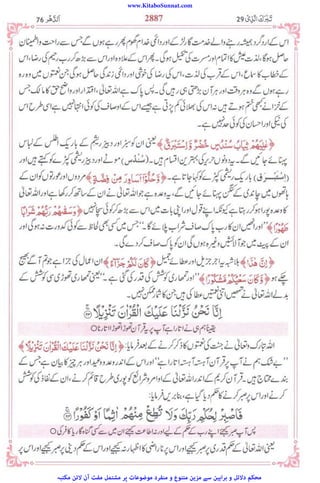 www.KitaboSunnat.com
تَبٰرَكَ الَّذِیْ 29
2887
اَلدَّھْر 76
اس کے اردگرد ہمیشہ رہنے والے خدمت گار لڑکے اور دائمی خدام گھوم پھر رہے ہوں گے جس سے راحت و اطمینان
حاصل ہوگا، لذت عیش کا اتمام اور مسرت کی تکمیل ہوگی۔ پھر اس کے علاوہ اور اس سے بڑھ کر رب رحیم کی رضا، اس
کے خطاب کا سماع، اس کے قرب کی لذت، اس کی رضا کی خوشی اور دائمی زندگی حاصل ہوگی جن نعمتوں میں وہ رہ
رہے ہوں گے وہ ہر وقت اور ہر آن بڑھتی ہی رہیں گی۔ پس پاک ہے اللہ تعالیٰ، اقتدار اور واضح حق کا مالک جس
کے خزانے کبھی ختم ہوتے ہیں نہ اس کی بھلائی کم پڑتی ہے جیسے اس کے اوصاف کی کوئی انتہا نہیں ہے اسی طرح اس
کی نیکی اور احسان کی کوئی حد نہیں ہے۔
﴿عٰلِیَهُمْ ثِیَابُ سُنْدُسٍ خُضْرٌ وَّاِسْتَبْرَقٌ﴾ یعنی ان کو سبز اور دبیز ریشم کے باریک اطلس کے لباس
پہنائے جائیں گے۔ یہ دونوں حریر کی بہترین اقسام ہیں۔ (سُنْدُسٍ) موٹے اور دبیز ریشمی کپڑے کو کہتے ہیں اور
(اِسْتَبْرَقٌ) باریک ریشمی کپڑے کو کہا جاتا ہے۔ ﴿وَّحُلُّوْٓا اَسَاوِرَ مِنْ فِضَّةٍ﴾ مردوں اور عورتوں کو ان کے
ہاتھوں میں چاندی کے کنگن پہنائے جائیں گے، یہ وہ وعدہ ہے جو اللہ تعالیٰ نے ان کے ساتھ کر رکھا ہے اور اللہ تعالیٰ
کا وعدہ پورا ہو کر رہتا ہے کیونکہ اپنے قول اور اپنی بات میں اس سے بڑھ کر کوئی سچا نہیں ﴿وَسَقٰهُمْ رَبُّهُمْ شَرَابًا
طَهُوْرًا﴾ ”اور انہیں ان کا رب پاک صاف شراب پلائے گا۔“ جس میں کسی بھی لحاظ سے کوئی کدورت نہ ہوگی اور
ان کے پیٹ میں جو آلائشیں وغیرہ ہوں گی ان کو پاک صاف کر دے گی۔
﴿اِنَّ هٰذَا﴾ بلاشبہ یہ اجر جزیل اور عطائے جمیل ﴿كَانَ لَكُمْ جَزَآءً﴾ ان اعمال کی جزا ہے جو تم آگے بھیج
چکے ہو ﴿وَّكَانَ سَعْیُكُمْ مَّشْكُوْرًا﴾ ”اور تمہاری کوشش کی قدر کی گئی ہے۔“ یعنی تمہاری تھوڑی سی کوشش کے
بدلے اللہ تعالیٰ نے تمہیں اتنی نعمتیں عطا کی ہیں جن کا شمار ممکن نہیں۔
اِنَّا نَحْنُ نَزَّلْنَا عَلَیْكَ الْقُرْاٰنَ تَنْزِیْلًا
یقیناً ہم ہی نے اتارا ہے آپ پر یہ قرآن تھوڑا تھوڑا اتارنا
اللہ تبارک و تعالیٰ نے جنت کی نعمتوں کا ذکر کرنے کے بعد فرمایا: ﴿اِنَّا نَحْنُ نَزَّلْنَا عَلَیْكَ الْقُرْاٰنَ تَنْزِیْلًا﴾
”بے شک ہم نے آپ پر قرآن آہستہ آہستہ اتارا ہے“ اور اس کے اندر وعدہ وعید اور ہر چیز کا بیان ہے جس کے
بندے محتاج ہیں۔ قرآن کریم کے اندر اللہ تعالیٰ کے اوامر و شرائع کو پوری طرح قائم کرنے، ان کے نفاذ کی کوشش
کرنے اور اس پر صبر کرنے کا حکم دیا گیا ہے، بنا بریں فرمایا:
فَاصْبِرْ لِحُكْمِ رَبِّكَ وَلَا تُطِعْ مِنْهُمْ اٰثِمًا اَوْ كَفُوْرًا
پس آپ صبر کیجئے اپنے رب کے حکم کے لیے اور نہ اطاعت کیجئے ان میں سے کسی گناہ گار یا کافر کی
یعنی اللہ تعالیٰ کے حکم قدری پر صبر کیجئے اور اس پر ناراضی کا اظہار نہ کیجئے اور اس کے حکم دینی پر صبر کیجئے اور اس پر
محکم دلائل و براہین سے مزین متنوع و منفرد موضوعات پر مشتمل مفت آن لائن مکتبہ